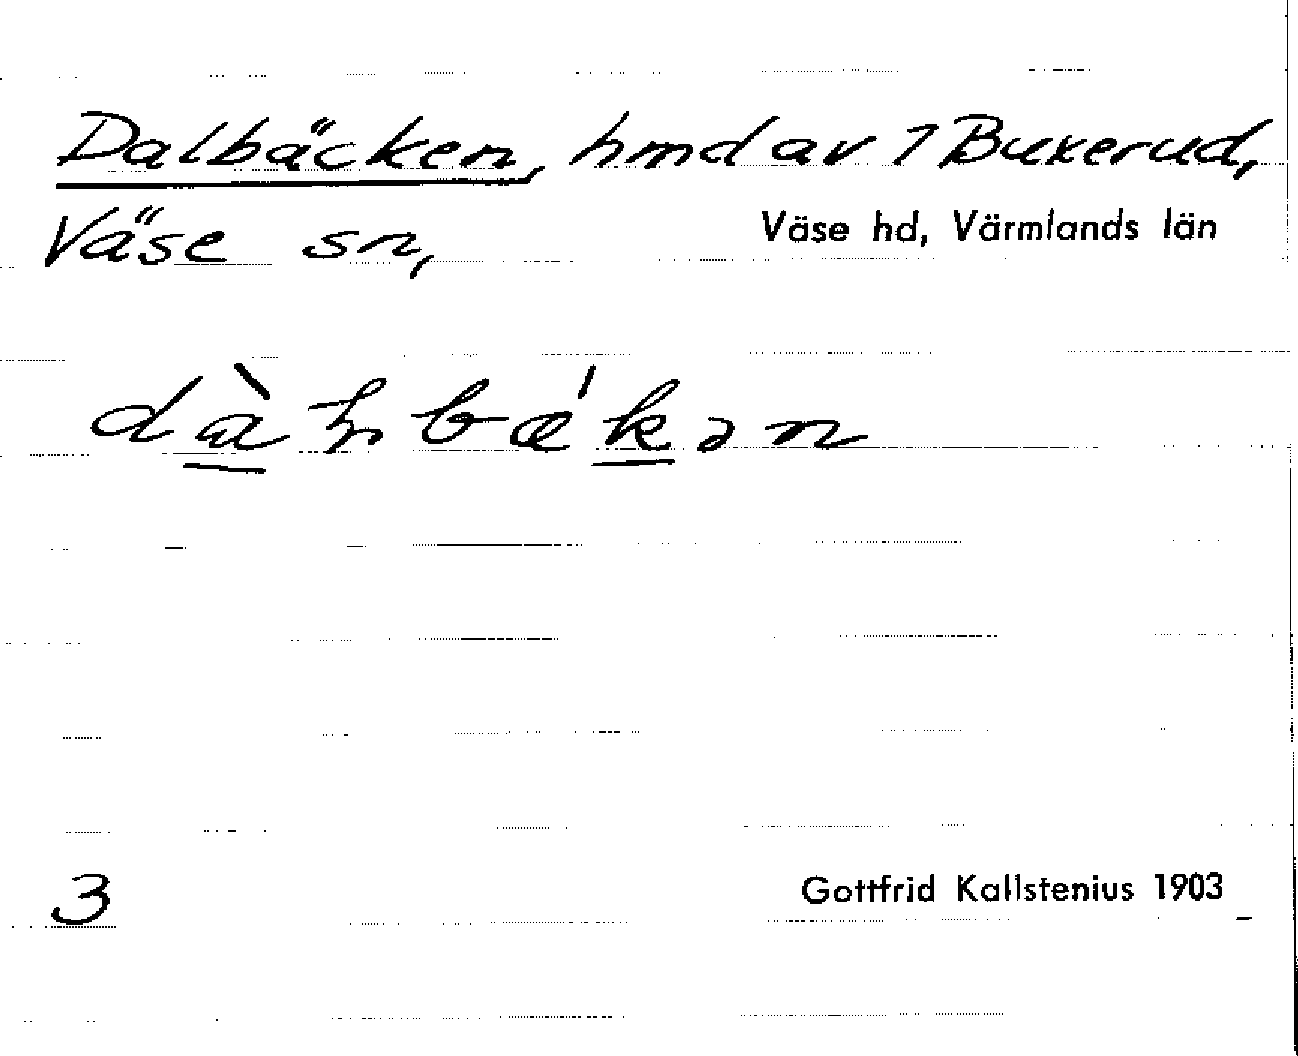 Dalbäcken, hmd av 1 Buxerud,
Väse sn, Väse hd, Värmlands län
3 Gottfrid Kallstenius 1903